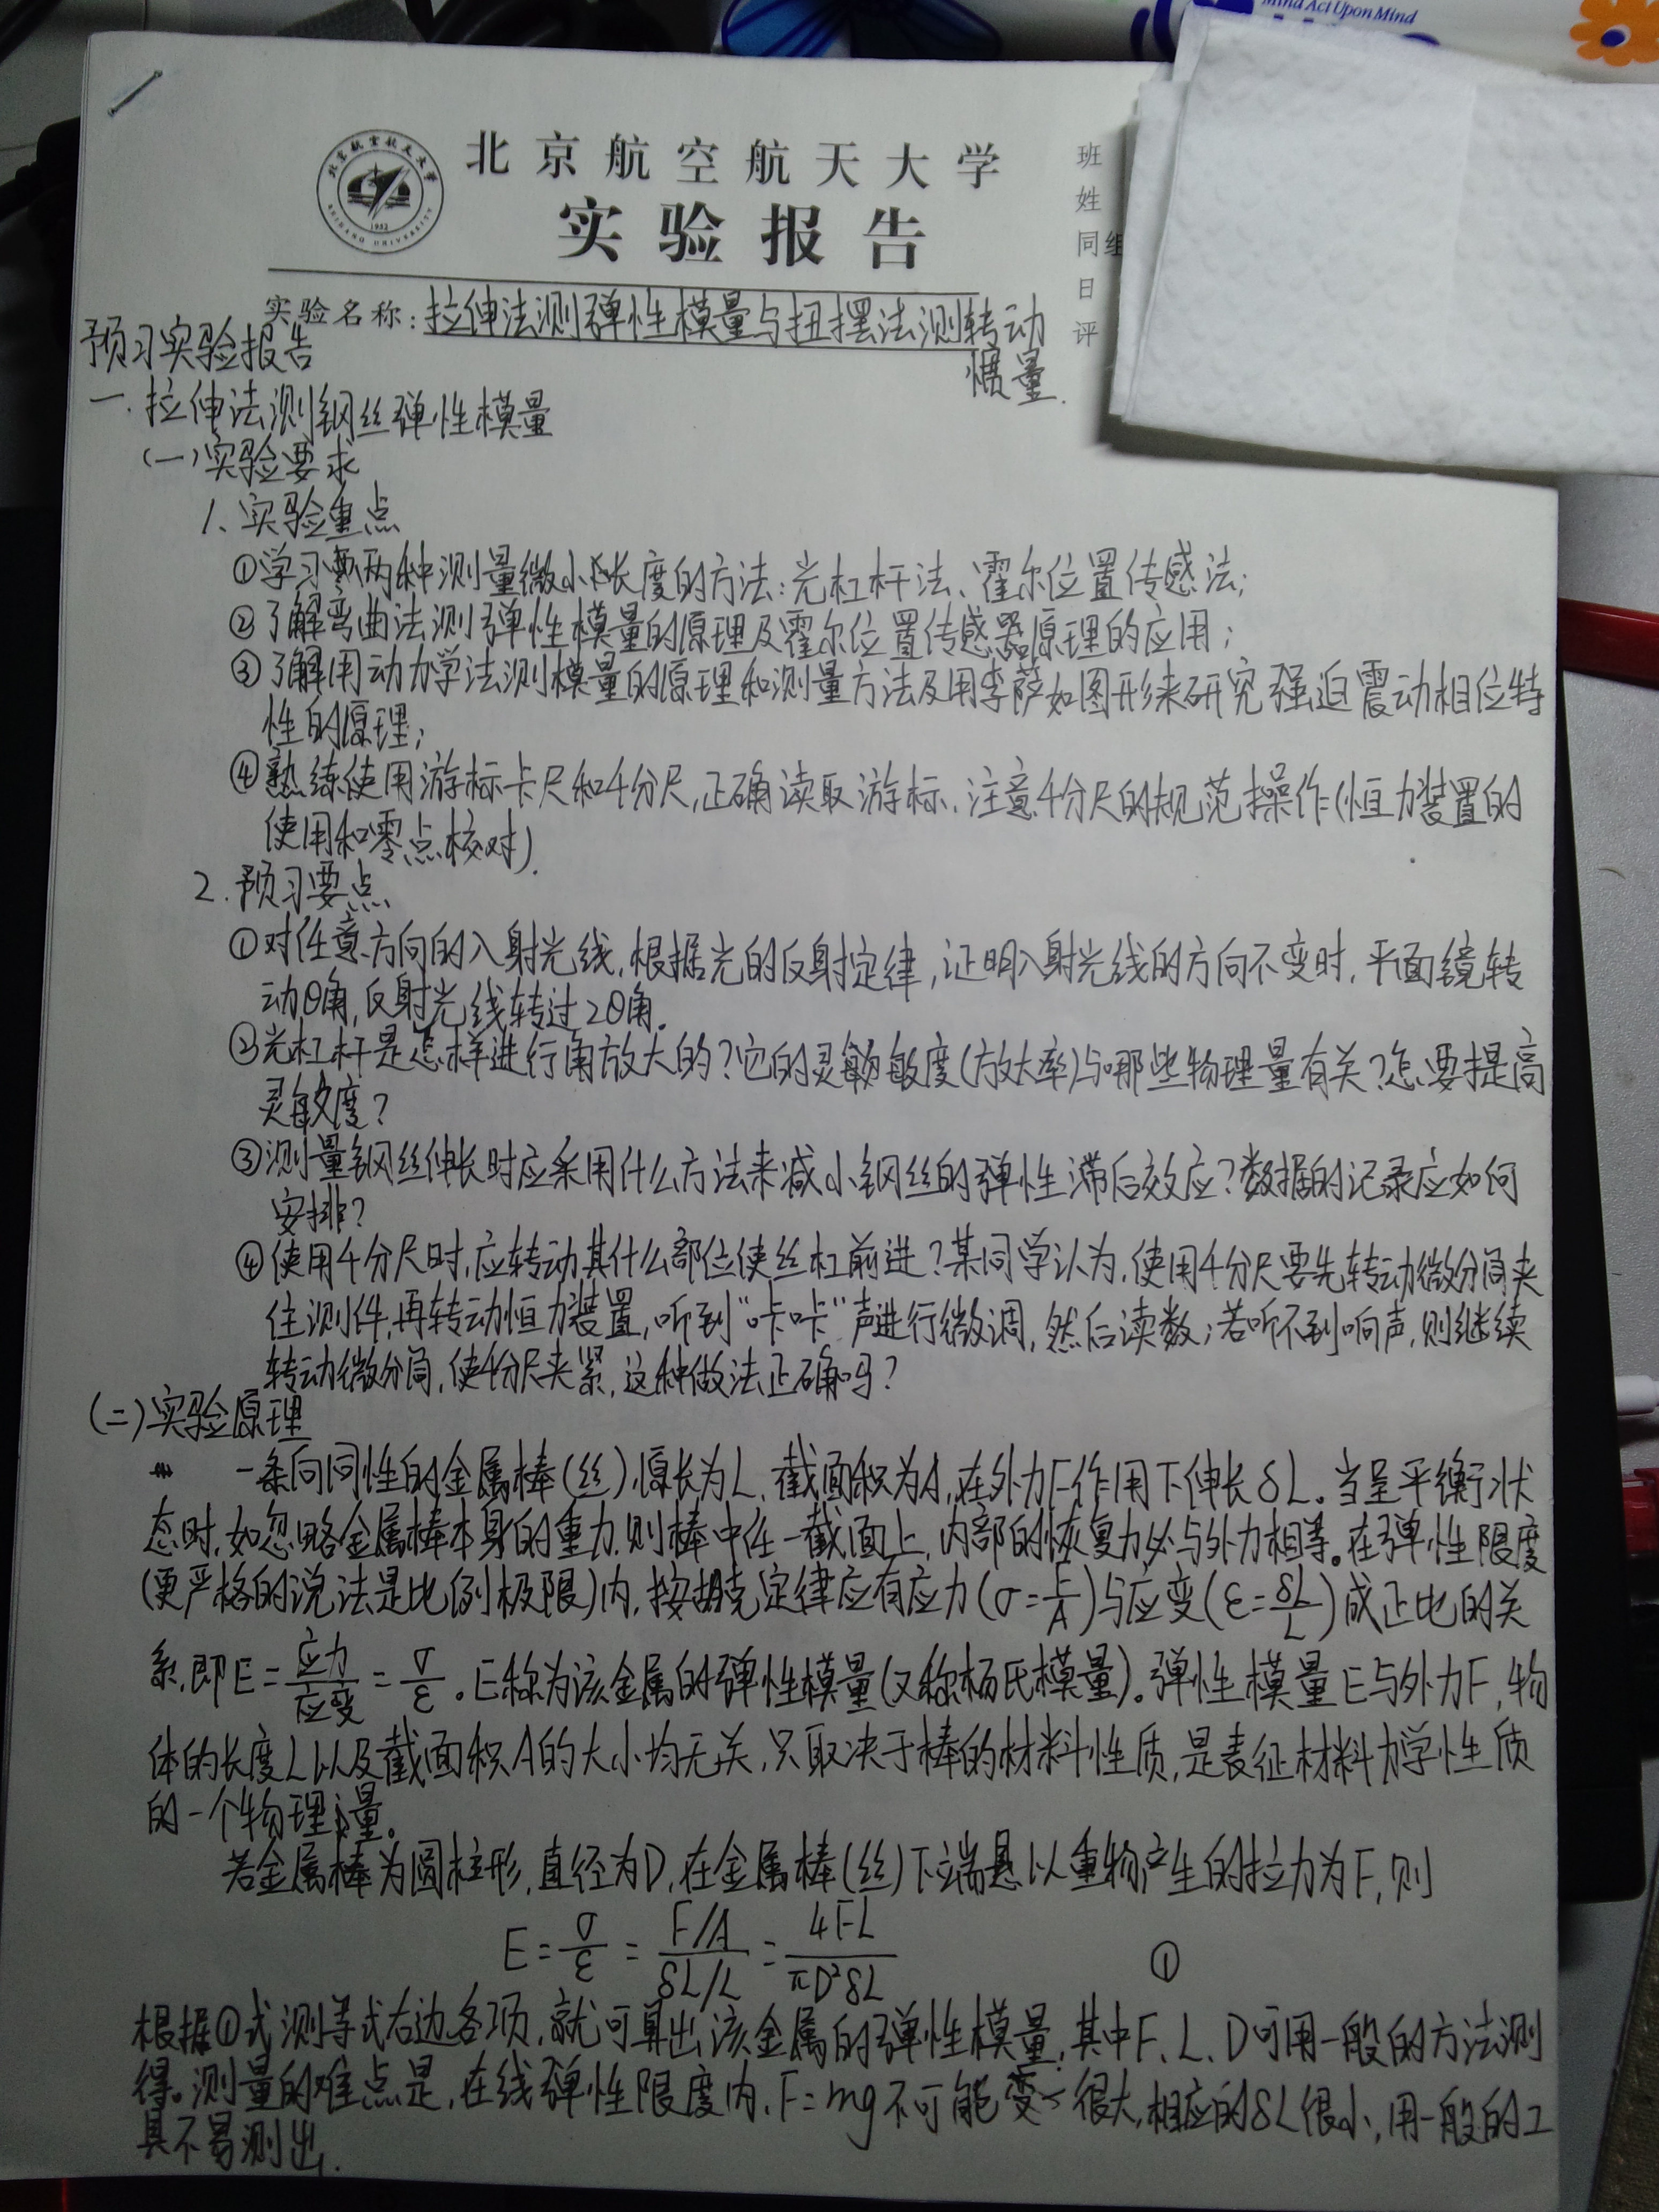 Mind Act Upon Mind
北京航空航天大学
实验报告
北京航空航天大学
BEIHANG UNIVERSITY
1952
班
姓
同组
日
评
实验名称:拉伸法测弹性模量与扭摆法测转动
惯量.
预习实验报告
一.拉伸法测钢丝弹性模量
(一)实验要求
1、实验重点
①学习两种测量微小长度的方法:光杠杆法、霍尔位置传感法;
②了解弯曲法测弹性模量的原理及霍尔位置传感器原理的应用;
③了解用动力学法测模量的原理和测量方法及用李萨如图形来研究强迫震动相位特
性的原理;
④熟练使用游标卡尺和千分尺,正确读取游标,注意千分尺的规范操作(恒力装置的
使用和零点核对).
2.预习要点
①对任意方向的入射光线,根据光的反射定律,证明入射光线的方向不变时,平面镜转
动θ角,反射光线转过2θ角.
②光杠杆是怎样进行角放大的?它的灵敏度(放大率)与哪些物理量有关?怎要提高
灵敏度?
③测量钢丝伸长时应采用什么方法来减小钢丝的弹性滞后效应?数据的记录应如何
安排?
④使用千分尺时,应转动其什么部位使丝杠前进?某同学认为,使用千分尺要先转动微分筒夹
住测件,再转动恒力装置,听到“咔咔”声进行微调,然后读数;若听不到响声,则继续
转动微分筒,使千分尺夹紧,这种做法正确吗?
(二)实验原理
一条向同性的金属棒(丝),原长为L,截面积为A,在外力F作用下伸长δL。当呈平衡状
态时,如忽略金属棒本身的重力,则棒中任一截面上,内部的恢复力必与外力相等。在弹性限度
(更严格的说法是比例极限)内,按胡克定律应有应力(σ=F/A)与应变(ε=δL/L)成正比的关
系,即E=应力/应变=σ/ε。E称为该金属的弹性模量(又称杨氏模量)。弹性模量E与外力F,物
体的长度L以及截面积A的大小均无关,只取决于棒的材料性质,是表征材料力学性质
的一个物理量。
若金属棒为圆柱形,直径为D,在金属棒(丝)下端悬以重物产生的拉力为F,则
E=σ/ε=(F/A)/(δL/L)=4FL/(πD²δL) ①
根据①式测等式右边各项,就可算出该金属的弹性模量,其中F、L、D可用一般的方法测
得。测量的难点是,在线弹性限度内,F=mg不可能很大,相应的δL很小,用一般的工
具不易测出.